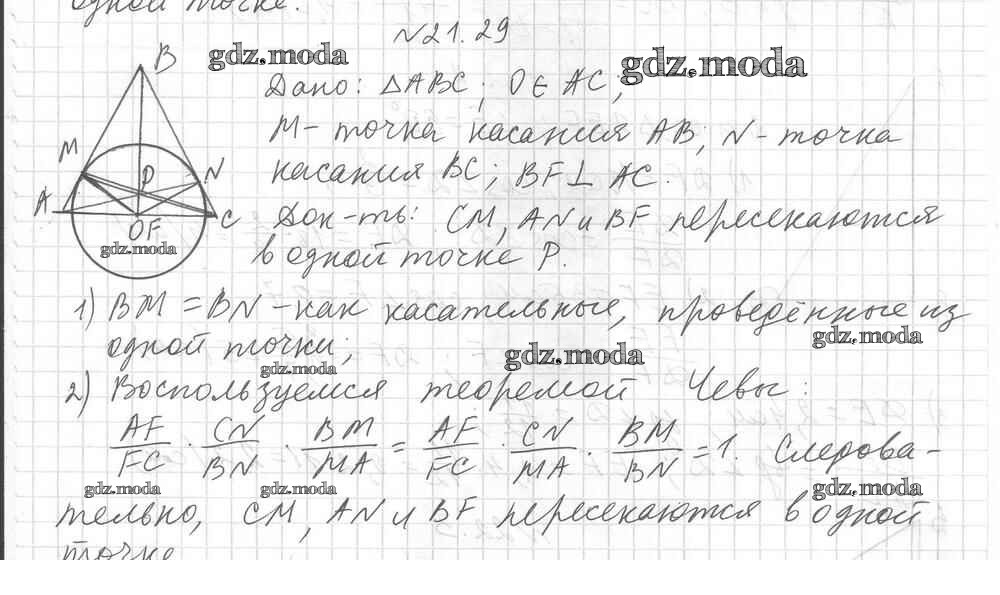 одной точке.
№21.29
gdz.moda
gdz.moda
B
Дано: △ABC; O∈AC;
M
M - точка касания AB; N - точка
P
N
касания BC; BF⊥AC.
A
OF
C
Док-ть: CM, AN и BF пересекаются
gdz.moda
в одной точке P.
1) BM = BN - как касательные, проведённые из
gdz.moda
одной точки;
gdz.moda
gdz.moda
2) Воспользуемся теоремой Чевы:
AF/FC · CN/BN · BM/MA = AF/FC · CN/MA · BM/BN = 1. Следова-
gdz.moda
gdz.moda
gdz.moda
тельно, CM, AN и BF пересекаются в одной
точке